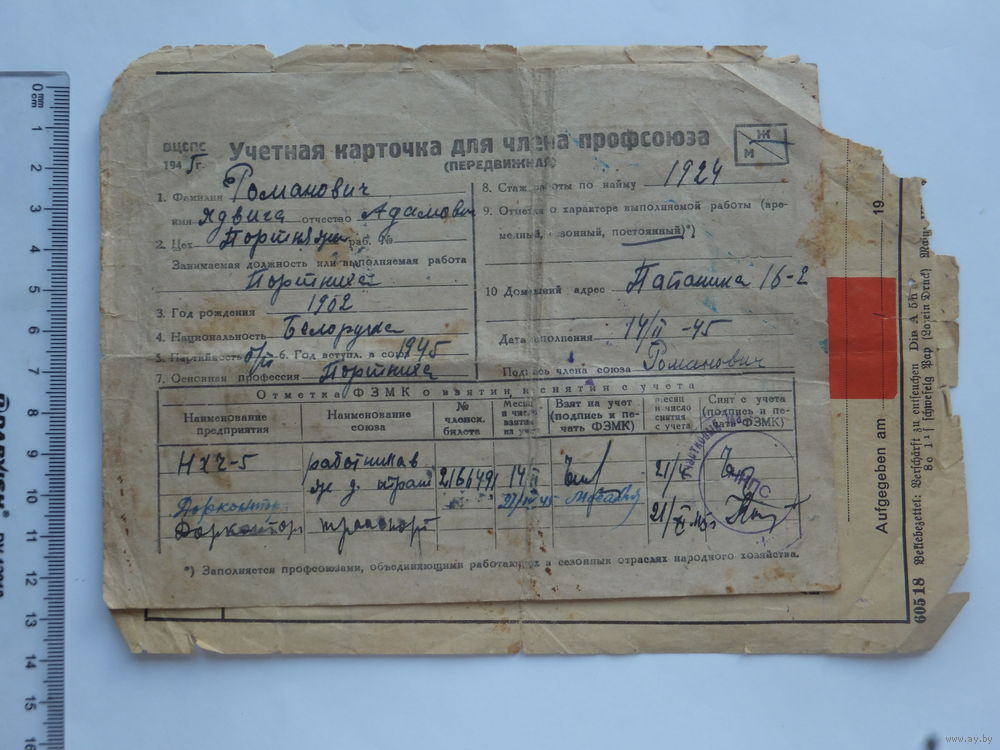 ВЦСПС
1945 г.
Учетная карточка для члена профсоюза
(ПЕРЕДВИЖНАЯ)
Ж
М
1. Фамилия Романович
имя Ядвига отчество Адамовн
2. Цех раб. №
Занимаемая должность или выполняемая работа
Портниха
3. Год рождения 1902
4. Национальность Белоруска
5. Партийность б/п 6. Год вступл. в союз 1945
7. Основная профессия Портниха
8. Стаж работы по найму 1924
9. Отметка о характере выполняемой работы (вре-
менный, сезонный, постоянный)*)
10 Домашний адрес Папанина 16-2
Дата заполнения 14/II -45
Подпись члена союза Романович
Отметка ФЗМК о взятии и снятии с учета
Наименование предприятия
Наименование союза
№ членск. билета
Месяц и число взятия на учет
Взят на учет (подпись и печать ФЗМК)
Месяц и число снятия с учета
Снят с учета (подпись и печать ФЗМК)
НХЧ-5 работников
же д. 2166491 14/II 21/V
Дорконт
Дорконтор транспорт 21/
НПС
*) Заполняется профсоюзами, объединяющими работающих в сезонных отраслях народного хозяйства.
19
Aufgegeben am
60518 Beklebezettel: Din A 5
0 cm
mm
1
2
3
4
5
6
7
8
9
10
11
12
13
14
15
16
www.ay.by